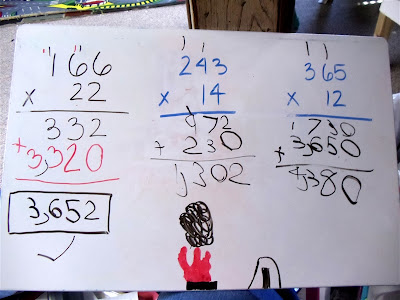 166
x 22
332
+3,320
3,652
1 1
243
x 14
972
+ 230
1,302
1 1
365
x 12
1 730
+ 3,650
4,380